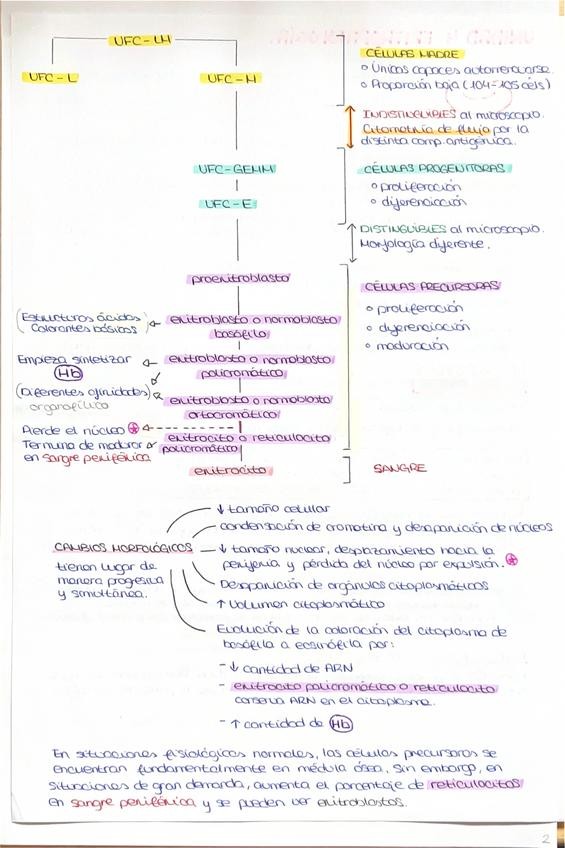 UFC-LM
UFC-L
UFC-M
CÉLULAS MADRE
Únicas capaces autorrenovarse.
Proporción baja (104-105 céls)
INDISTINGUIBLES al microscopio.
Citometría de flujo por la
distinta comp. antigénica.
UFC-GEMM
UFC-E
CÉLULAS PROGENITORAS
proliferación
diferenciación
DISTINGUIBLES al microscopio.
Morfología diferente.
proeritroblasto
CÉLULAS PRECURSORAS
proliferación
diferenciación
maduración
(Estructuras ácidas
Colorantes básicos)
eritroblasto o normoblasto
basófilo
Empieza sintetizar
Hb
eritroblasto o normoblasto
policromático
(Diferentes afinidades)
eritroblasto o normoblasto
ortocromático
Pierde el núcleo
Termina de madurar
en sangre periférica
eritrocito o reticulocito
policromático
eritrocito
SANGRE
CAMBIOS MORFOLÓGICOS
tienen lugar de
manera progresiva
y simultánea.
↓ tamaño celular
condensación de cromatina y desaparición de núcleos
↓ tamaño nuclear, desplazamiento hacia la
periferia y pérdida del núcleo por expulsión.
Desaparición de orgánulos citoplasmáticos
↑ Volumen citoplasmático
Evolución de la coloración del citoplasma de
basófila a eosinófila por:
- ↓ cantidad de ARN
- eritrocito policromático o reticulocito
conserva ARN en el citoplasma.
- ↑ cantidad de Hb
En situaciones fisiológicas normales, las células precursoras se
encuentran fundamentalmente en médula ósea. Sin embargo, en
situaciones de gran demanda, aumenta el porcentaje de reticulocitos
en sangre periférica y se pueden ver eritroblastos.
2